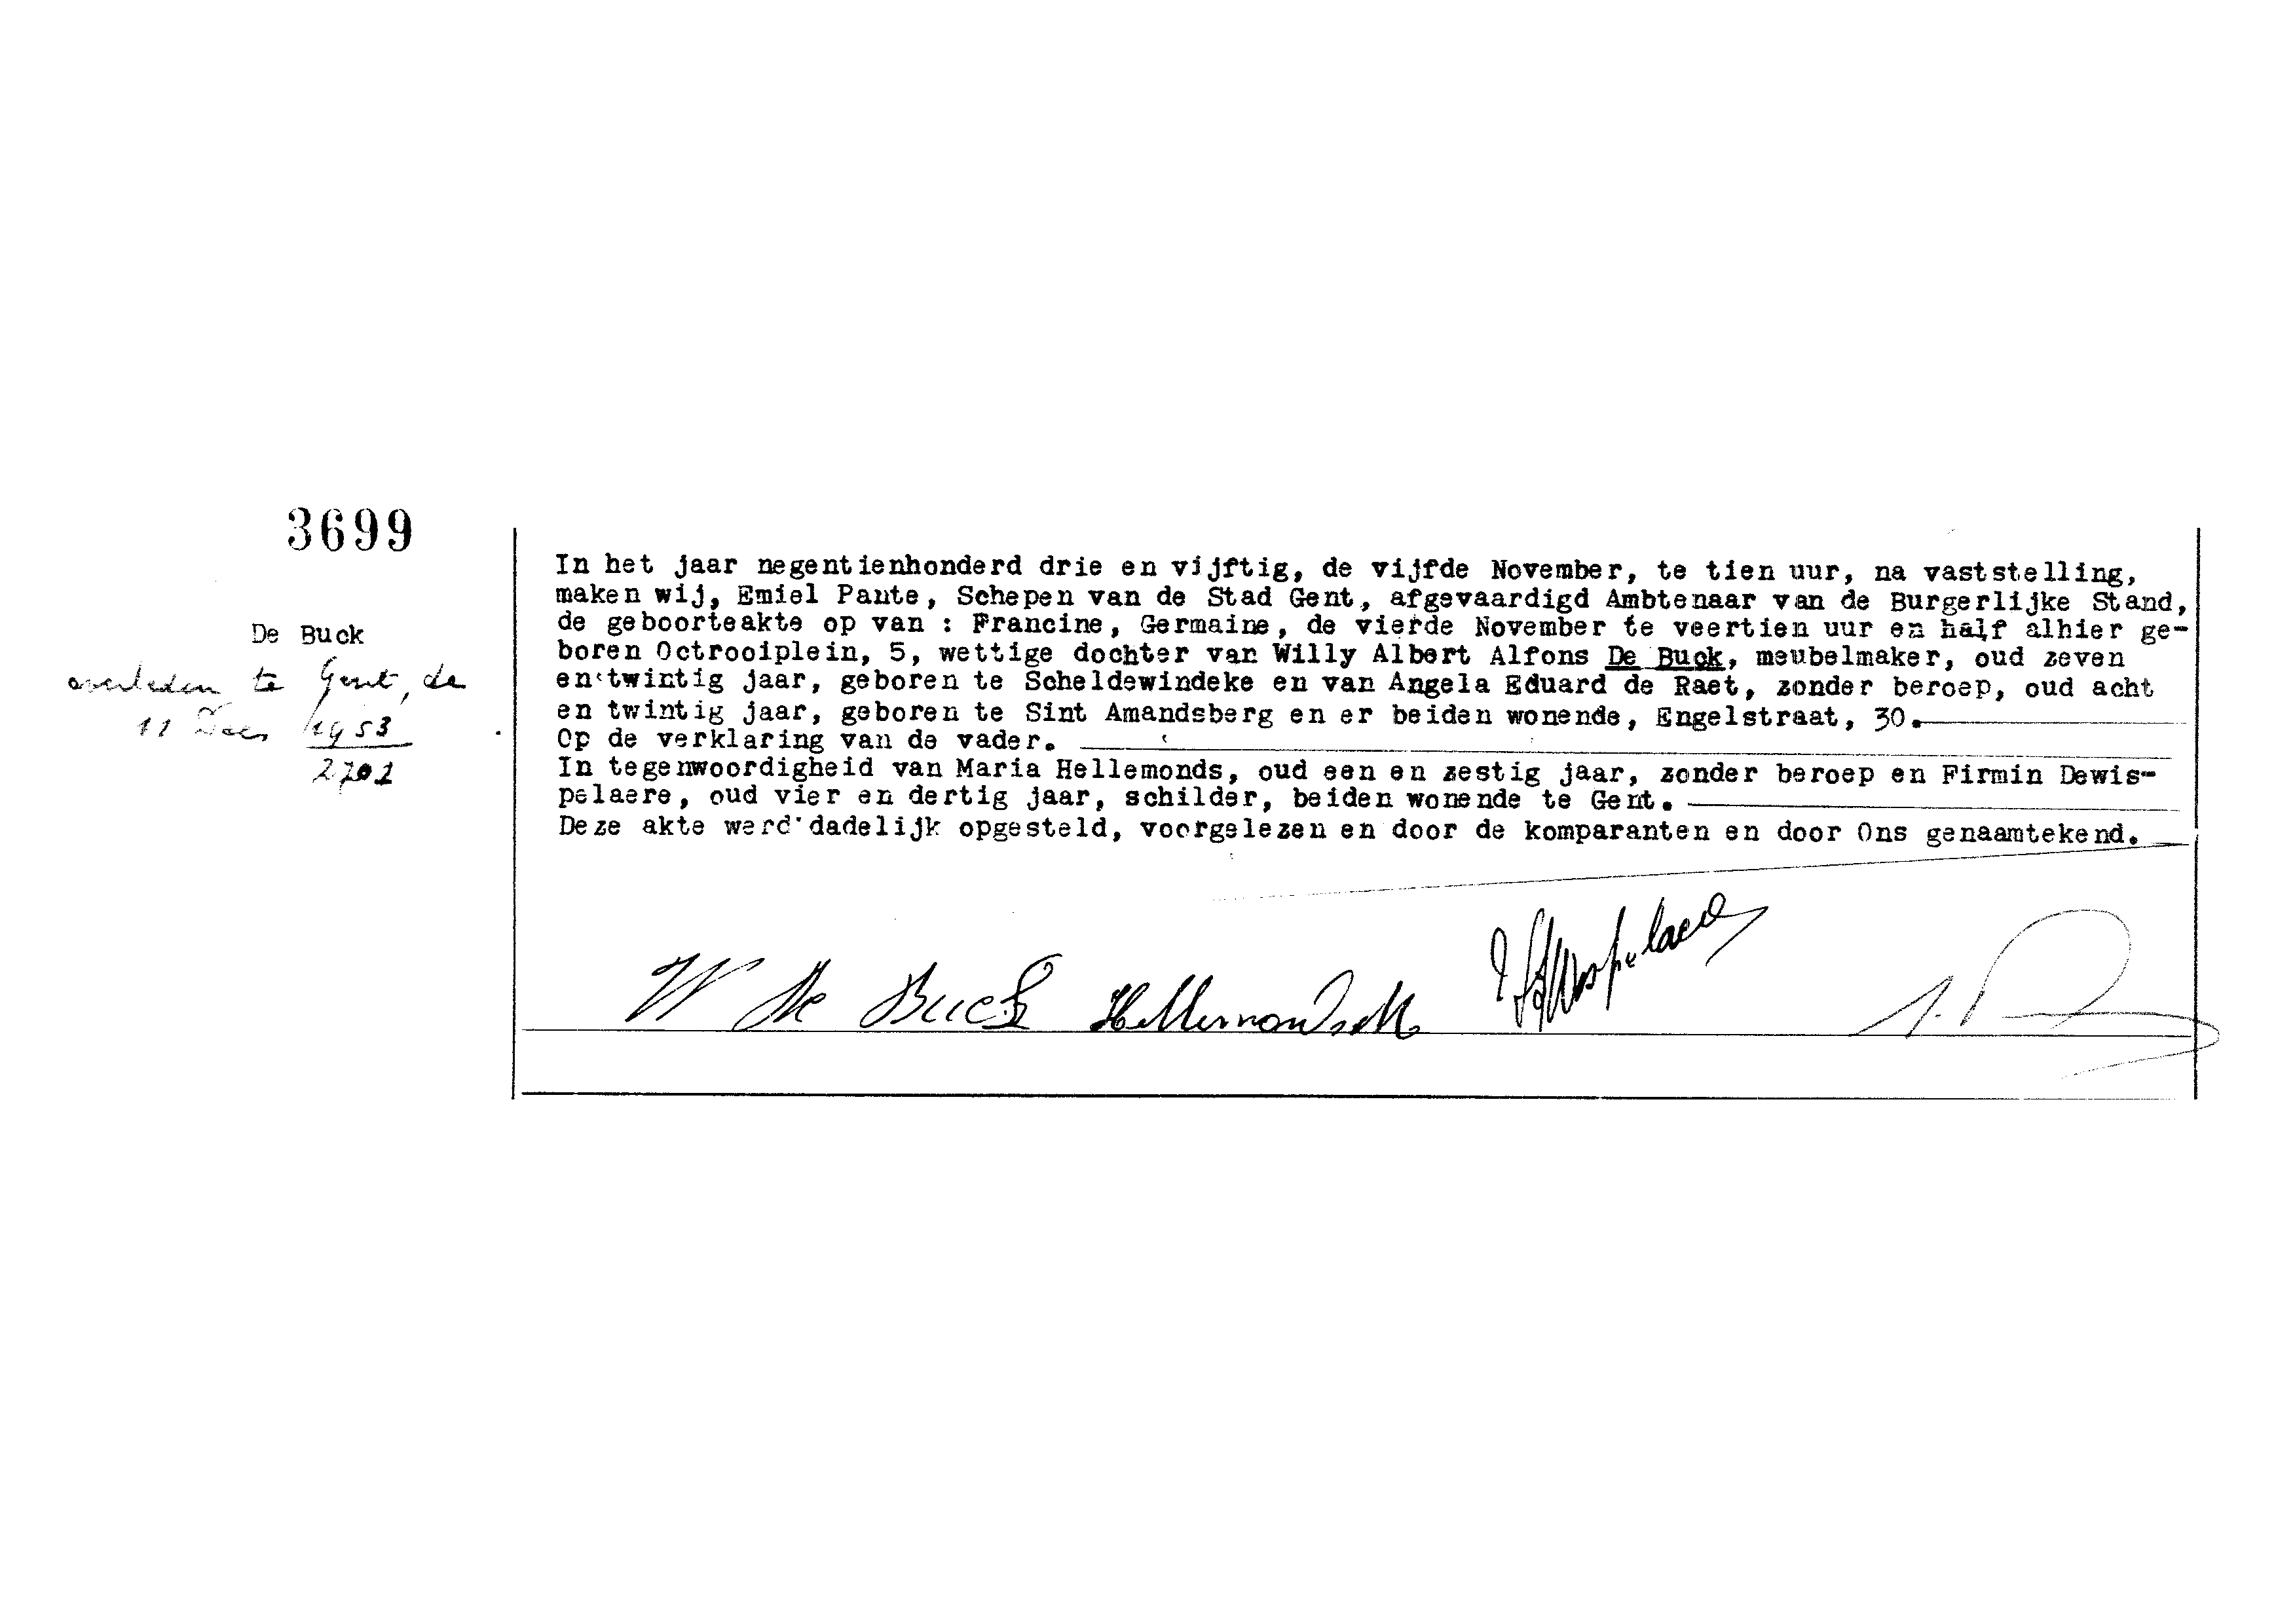 3699
De Buck
overleden te Gent, de
11 Dec 1953
2701
In het jaar negentienhonderd drie en vijftig, de vijfde November, te tien uur, na vaststelling,
maken wij, Emiel Paute, Schepen van de Stad Gent, afgevaardigd Ambtenaar van de Burgerlijke Stand,
de geboorteakte op van : Francine, Germaine, de vierde November te veertien uur en half alhier ge-
boren Octrooiplein, 5, wettige dochter van Willy Albert Alfons De Buck, meubelmaker, oud zeven
en twintig jaar, geboren te Scheldewindeke en van Angela Eduard de Raet, zonder beroep, oud acht
en twintig jaar, geboren te Sint Amandsberg en er beiden wonende, Engelstraat, 30.
Op de verklaring van de vader.
In tegenwoordigheid van Maria Hellemonds, oud een en zestig jaar, zonder beroep en Firmin Dewis-
pelaere, oud vier en dertig jaar, schilder, beiden wonende te Gent.
Deze akte werd dadelijk opgesteld, voorgelezen en door de komparanten en door Ons genaamtekend.
W De Buck Hellemonds M